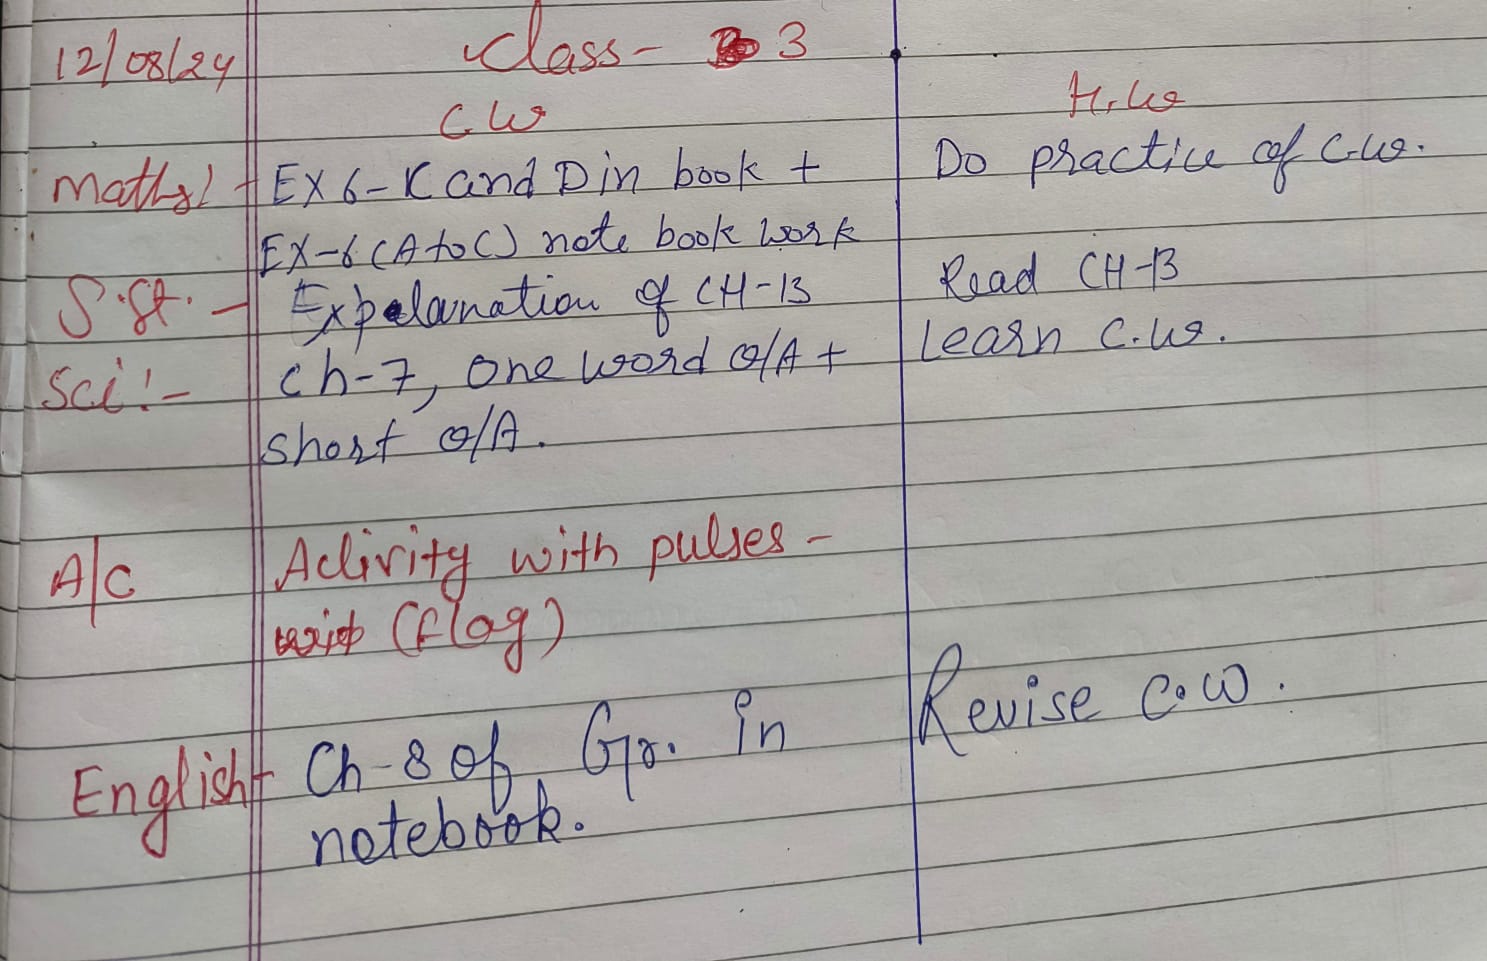 12/08/24 Class- 3
C.W H.W
Maths:- EX 6-K and D in book + Do practice of C.W.
EX-6 (A to C) note book work
S.St. - Expelanation of CH-13 Read CH-13
Sci:- Ch-7, one word Q/A + Learn C.W.
Short Q/A.
A/C Activity with pulses -
(flag)
English- Ch-8 of Gr. in Revise C.W.
notebook.